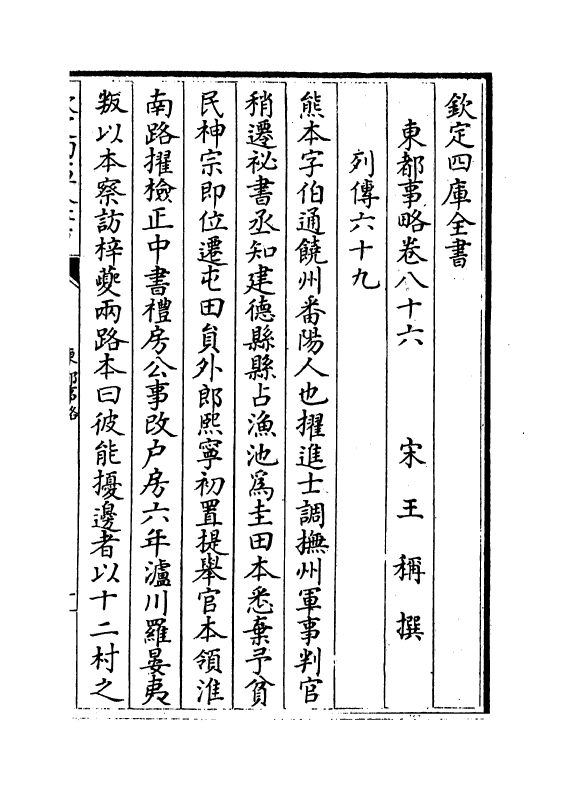 欽定四庫全書
東都事略卷八十六
宋王稱撰
列傳六十九
熊本字伯通饒州番陽人也擢進士調撫州軍事判官
稍遷祕書丞知建德縣縣占漁池爲圭田本悉棄予貧
民神宗即位遷屯田員外郎熙寧初置提舉官本領淮
南路擢檢正中書禮房公事改户房六年瀘川羅晏夷
叛以本察訪梓夔兩路本曰彼能擾邊者以十二村之
東都事略